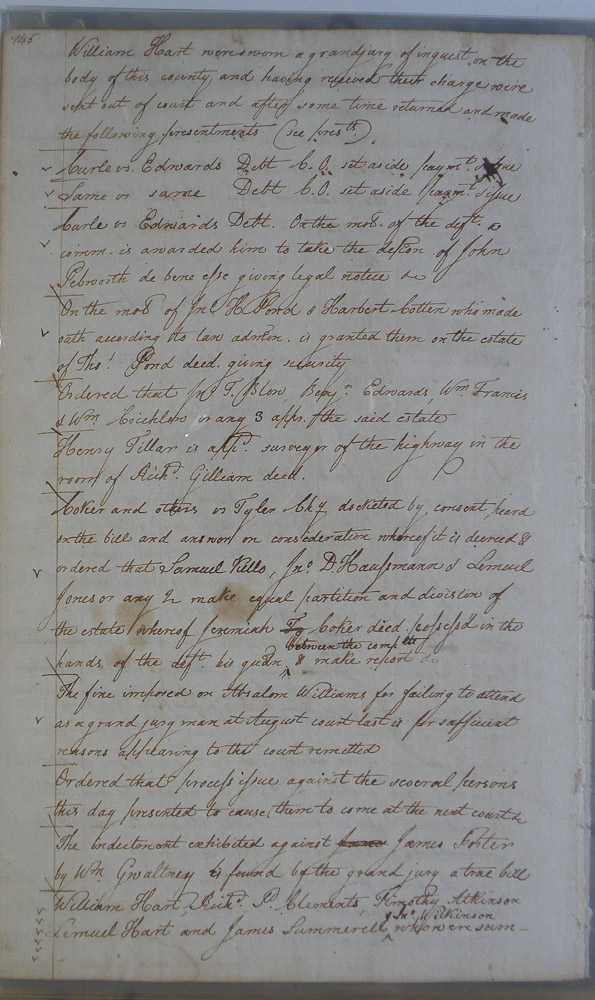 William Hart were sworn a grand jury of inquest on the
body of this county, and having received their charge were
sent out of court and after some time returned and made
the following presentments (see prests.)
Curle vs. Edwards Debt C.O. set aside paymt. issue
Same vs same Debt C.O. set aside paymt. issue
Curle vs Edwards Debt. On the moo. of the deft. a
comm. is awarded him to take the deson. of John
Pebworth de bene esse giving legal notice &c
On the moo of Jno H. Pond & Harbert Cotten who made
oath according to law admon. is granted them on the estate
of Thos. Pond deed. giving security
Ordered that Jno. T. Blow, Benjn Edwards, Wm. Francis
& Wm Crichlow or any 3 appr. the said estate
Henry Tillar is appd. surveyor of the highway in the
room of Richd. Gilliam deed.
Coker and others vs Tyler Chy docketed by consent, heard
on the bill and answer on consideration whereof it is decreed &
ordered that Samuel Kello, Jno. D Haussmann & Lemuel
Jones or any 2 make equal partition and division of
the estate whereof Jeremiah Coker died possess'd in the
between the complts
hands of the deft. his gudn. & make report &c
The fine imposed on Absalom Williams for failing to attend
as a grand jury man at August court last is for sufficient
reasons appearing to the court remitted
Ordered that process issue against the several persons
this day presented to cause them to come at the next court &c
The indictment exhibited against James Foster
by Wm Gwaltney is found by the grand jury a true bill
William Hart, Richd. P. Clements, Timothy Atkinson
& Jno. Wilkinson
Lemuel Hart and James Summerell who were sum-